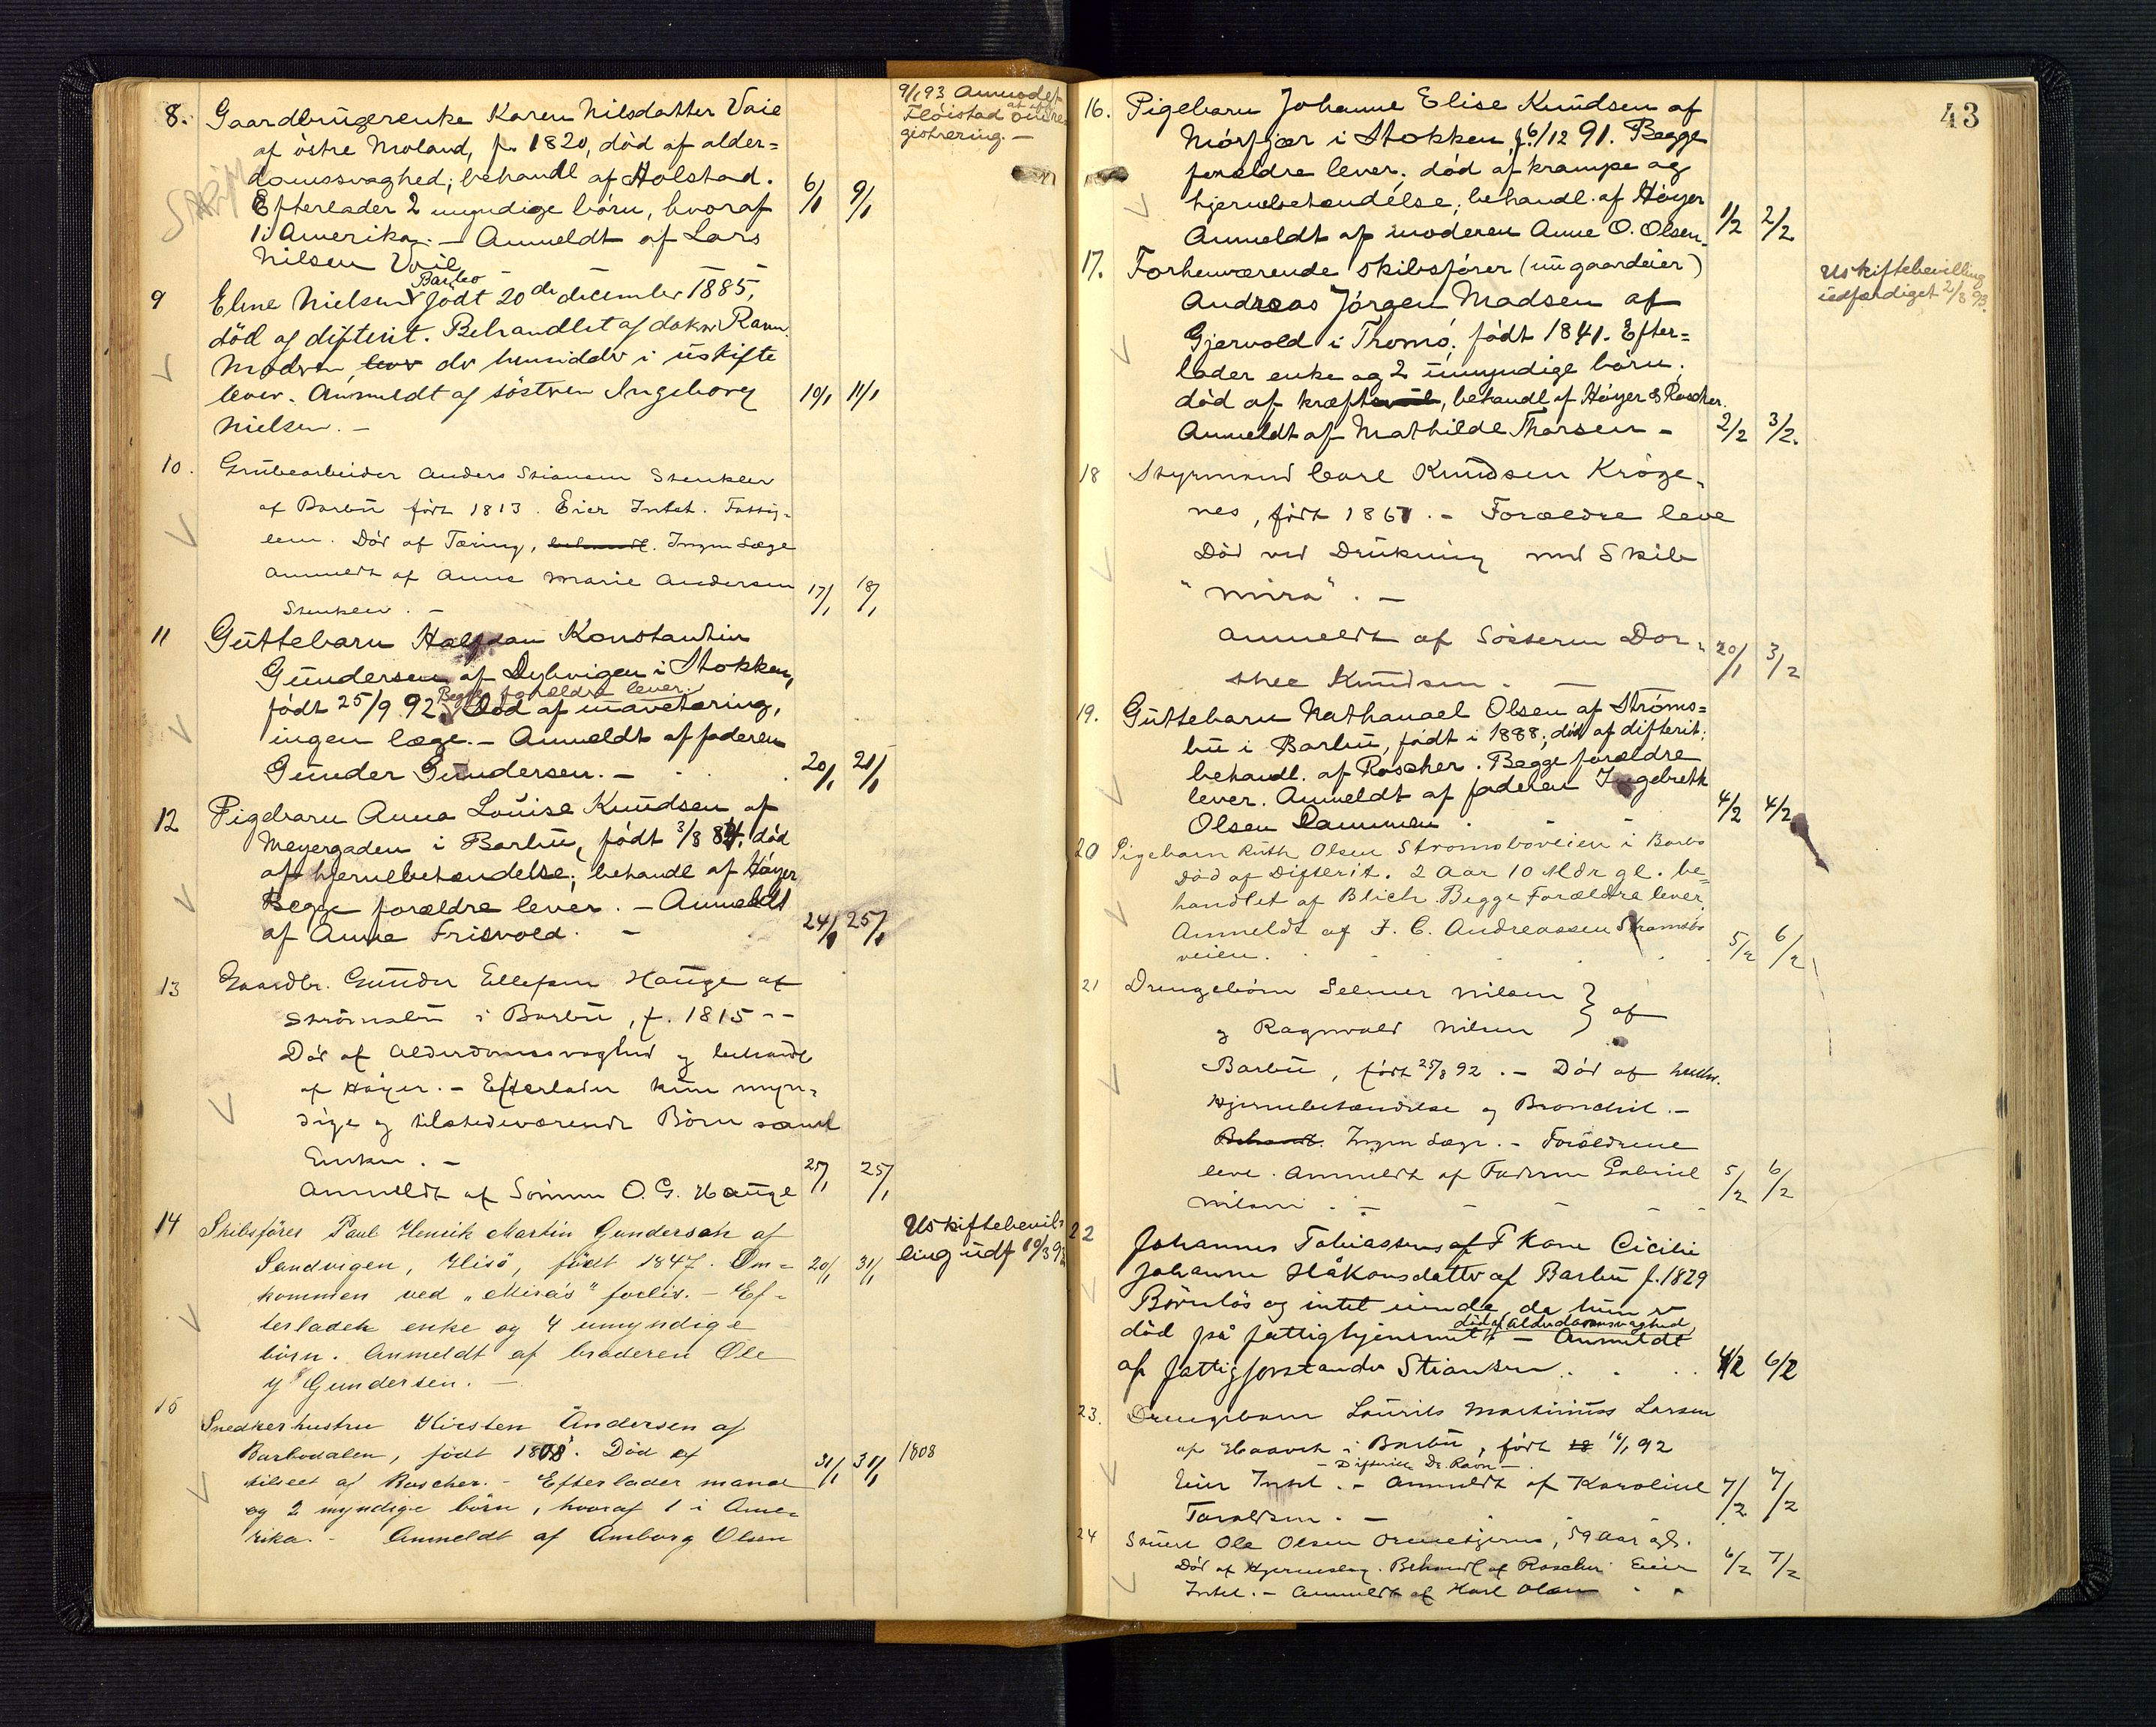 8. Gaardbrugerenke Karen Nilsdatter Vaie
af östre Moland, f. 1820, död af alder=
domssvaghed; behandl af Holstad.
Efterlader 2 myndige börn, hvoraf 6/1 9/1
1 i Amerika. — Anmeldt af Lars
Nilsen Vaie
9/1 93 Anmodet
Flöistad om re=
gistrering. —
9 Eline Nielsen Barbo födt 20de december 1885,
död af difterit. Behandlet af doktor Ravn.
Modren lever der hensidder i uskifte
lever. Anmeldt af söstren Ingeborg 10/1 11/1
Nielsen. —
10. Grubearbeider Anders Stiansen Stenklev
af Barbu född 1813. Eier Intet. Fattig-
lem. Död af Tæring, behandl. Ingen Læge
Anmeldt af Anne Marie Andersen 17/1 18/1
Stenklev. —
11 Guttebarn Halfdan Konstantin
Gundersen af Dybvigen i Stokken,
Begge forældre lever.
födt 25/9 92. Död af mavetæring,
ingen læge. — Anmeldt af faderen
Gunder Gundersen. — 20/1 21/1
12 Pigebarn Anna Louise Knudsen af
Meyergaden i Barbu, födt 3/8 84, död
af hjernebetændelse; behandl af Höyer
Begge forældre lever. — Anmeldt
af Anne Frisvold. — 24/1 25/1
13 Gaardbr. Gunder Ellefsen Hauge af
Strömsbu i Barbu, f. 1815 --
Död af Alderdomssvaghed og behandl
af Höyer. — Efterlader kun myn-
dige og tilstedeværende Börn samt
Enken. — 25/1 25/1
Anmeldt af Sönnen O. G. Hauge
14 Skibsförer Paul Henrik Martin Gundersen af
Sandvigen, Hisö, födt 1847. Om= 20/1 31/1
kommen ved „Mira's" forlis. — Ef-
terlader enke og 4 umyndige
börn. Anmeldt af broderen Ole
Gundersen. —
Uskiftebevil-
ling udf 10/3 93
15 Snedkerhustru Kirsten Andersen af
Barbodalen, födt 1808. Död af 31/1 31/1 1808
tilseet af Roscher. - Efterlader mand
og 2 myndige börn, hvoraf 1 i Ame-
rika. - Anmeldt af Amborg Olsen
43
16. Pigebarn Johanne Elise Knudsen af
Mörfjær i Stokken, f. 6/12 91. Begge
forældre lever; död af krampe og
hjernebetændelse; behandl. af Höyer
Anmeldt af moderen Anne O. Olsen. 1/2 2/2
17. Forhenværende skibsförer (nu gaardeier)
Andreas Jörgen Madsen af
Gjervold i Tromö, födt 1841. Efter=
lader enke og 2 umyndige börn;
död af kræft, behandl af Höyer & Roscher.
Anmeldt af Mathilde Thorsen - 2/2 3/2.
Uskiftebevilling
udfærdiget 2/3 93.
18 Styrmand Carl Knudsen Kröge-
nes, födt 1861. - Forældre leve
Död ved Drukning med Skib
"Mira". —
Anmeldt af Söstren Dor- 20/1 3/2
thee Knudsen. —
19. Guttebarn Nathanael Olsen af Ströms=
bu i Barbu, födt i 1888; död af difterit;
behandl. af Roscher. Begge forældre
lever. Anmeldt af faderen Ingebrekt
Olsen Dammen. 4/2 4/2
20 Pigebarn Ruth Olsen Strömsboveien i Barbo
Död af Difterit. 2 Aar 10 Mdr gl. be=
handlet af Blich. Begge Forældre lever.
Anmeldt af F. C. Andreassen Strömsbo
veien. 5/2 6/2
21 Drengebörn Selmer Nilsen } af
og Ragnvald Nilsen
Barbu, födt 25/8 92. - Död af
Hjernebetændelse og Bronchit. -
Behandl. Ingen Læge. - Forældrene
leve. Anmeldt af Faderen Gabriel 5/2 6/2
Nilsen. —
22 Johannes Tobiassens Kone Cicilie
Johanne Håkonsdatter af Barbu f. 1829
Börnlös og intet eiende, da hun er
död af alderdomssvaghed
död på fattighjemmet. — Anmeldt
af fattigforstander Stiansen. 4/2 6/2
23. Drengebarn Laurits Martinius Larsen
af Haavet i Barbu, födt 16/1 92
- Difterit. Dr. Ravn -
Eier Intet. - Anmeldt af Karoline 7/2 7/2
Taraldsen. —
24 Stuert Ole Olsen Ormetjern, 59 Aar gl.
Död af Hjerneslag. Behandl af Roscher. Eier 6/2 7/2
Intet. - Anmeldt af Karl Olsen